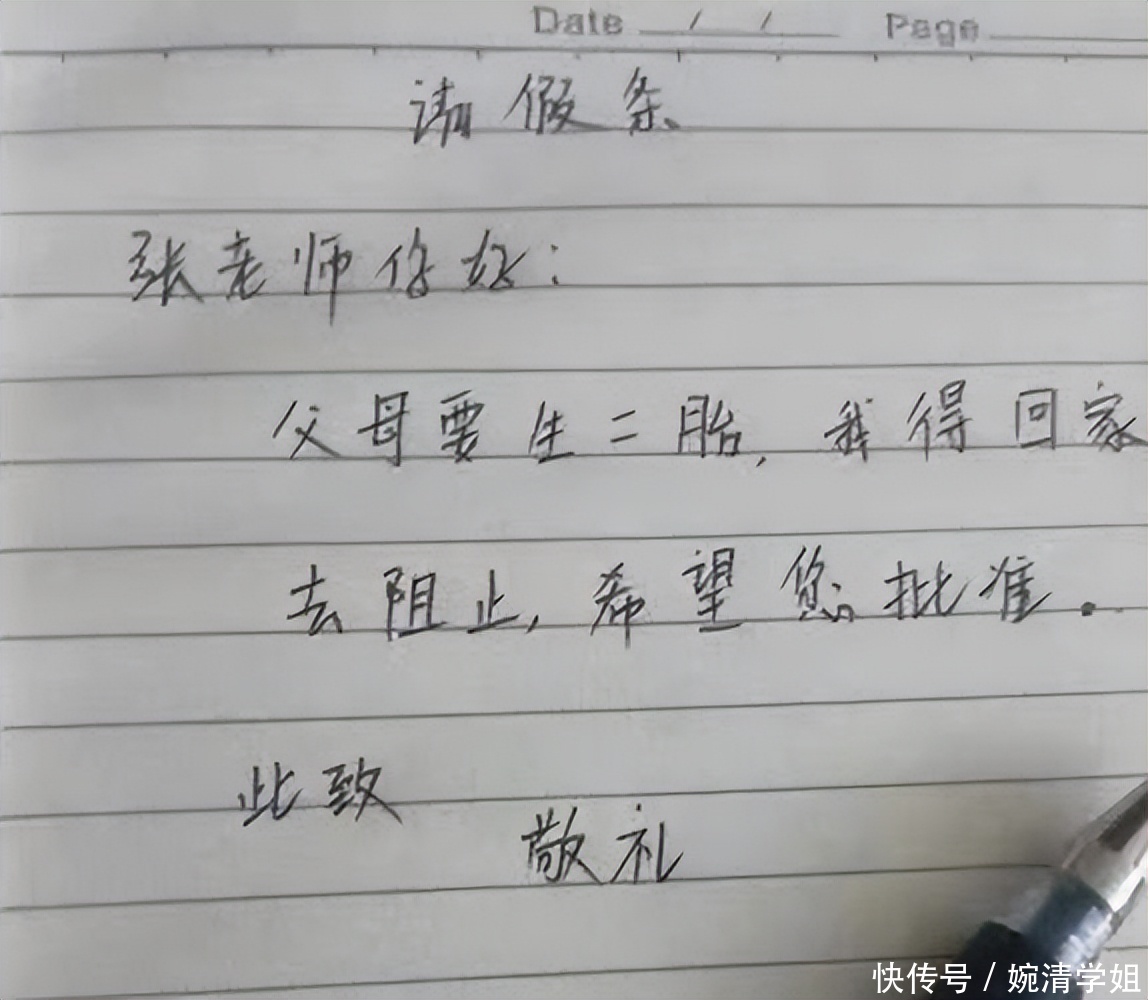 Date / / Page
请假条
张老师你好:
父母要生二胎,我得回家
去阻止,希望您批准.
此致
敬礼
快传号 / 婉清学姐